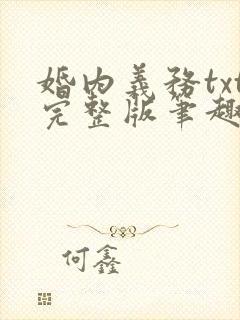 婚内義務txt
完整版筆趣
何鑫